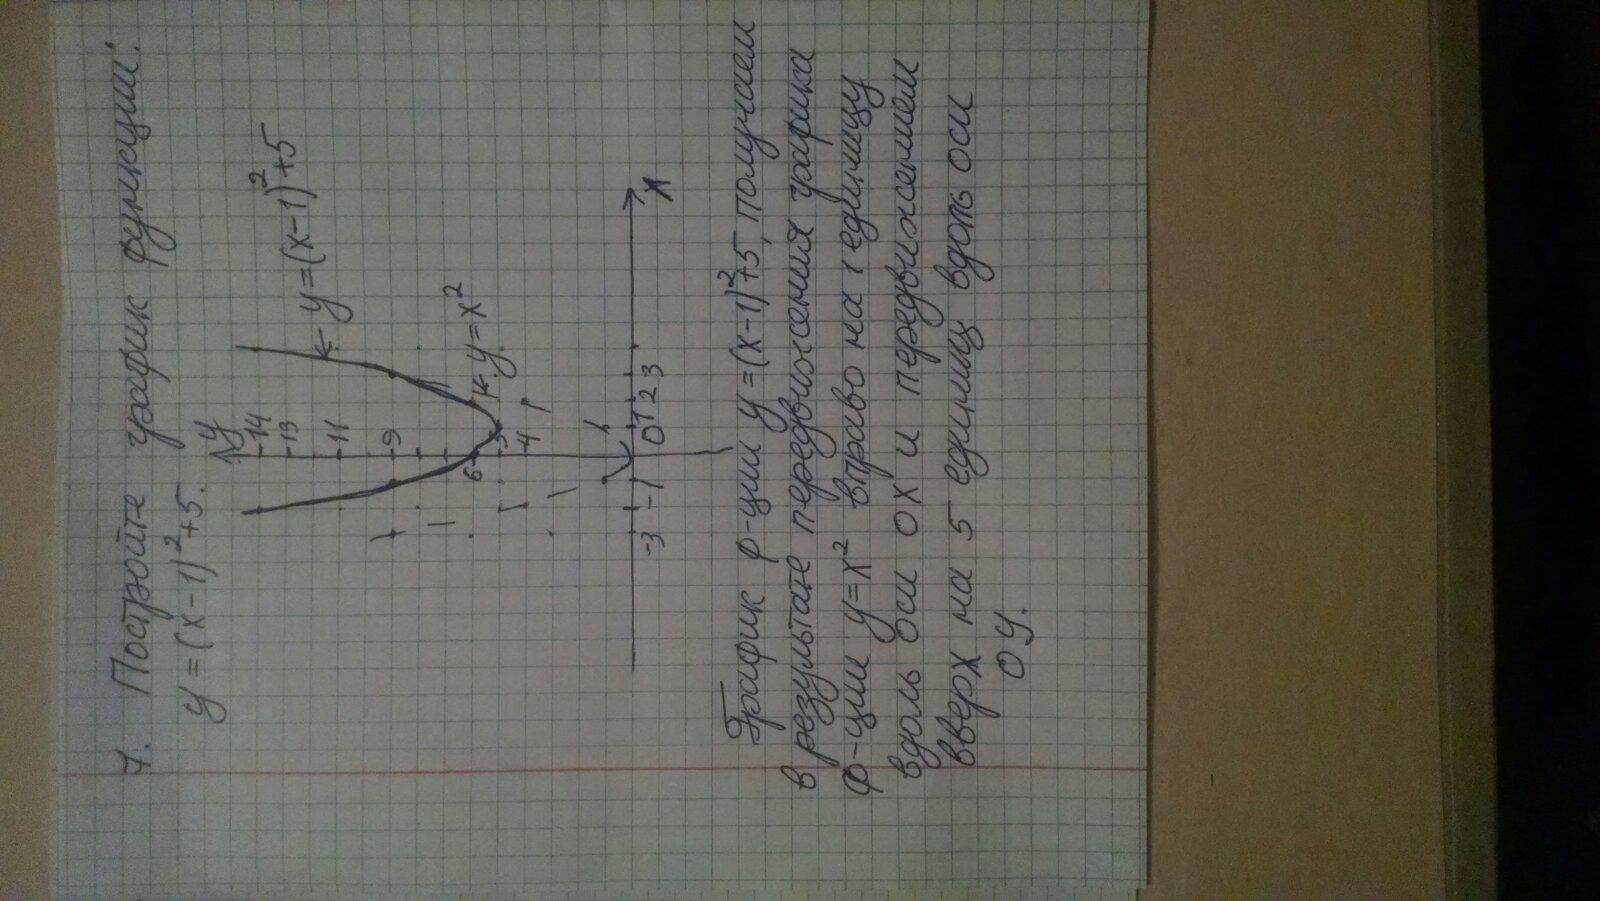 7. Постройте график функции:
y = (x-1)²+5.
y
14
13
11
9
6
5
4
y=(x-1)²+5
y=x²
-3 -1 0 1 2 3
x
График ф-ции y=(x-1)²+5, получаем
в результате передвижения графика
ф-ции y=x² вправо на 1 единицу
вдоль оси OX и передвижением
вверх на 5 единиц вдоль оси
OY.